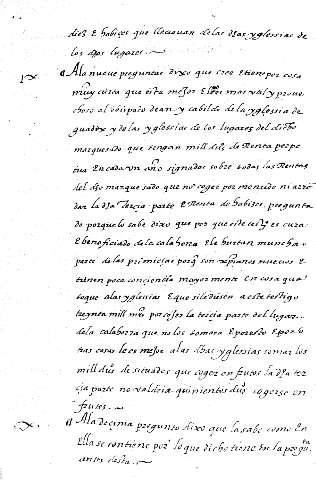 dios E habices que lleuauan de las dhas yglessias de
los dhos lugares.
IX A la nueve preguntas dixo que cree E tiene por cosa
muy cierta que esta mejor E mas vtil y prove
choso al obispado dean y cabildo de la yglessia de
guadix y de las yglesias de los lugares del dicho
marquesado que tengan mill dus de Renta perpe
tua En cada vn año signados sobre todas las Rentas
del dho marquesado que no coger por menudo ni arre
dar la dha Tercia parte E Renta de habices, pregunta
do por que lo sabe dixo que por que este tes° es cura
E beneficiado de la calahorra E le hurtan muncha
parte de las primicias porq son xpianos nuevos E
tienen poca conciencia mayormente En cosa que
toque a las yglesias E que si le diesen a este testigo
treynta mill por la tercia parte del lugar
de la calahorra que no los tomara E por esto E por o
tras cosas le es mejor a las dhas yglessias tomar los
mill dus de situados que coger en frutos la dha ter
cia parte no valdria quinientos dus cogerse en
frutos.
X. A la decima pregunto dixo que la sabe como En
Ella se contiene por lo que dicho tiene En la pregta
antes desta.